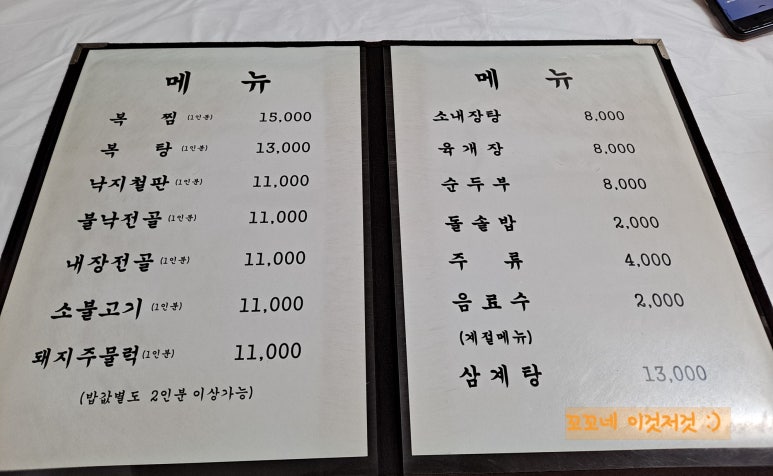 메 뉴
복 찜 (1인분) 15,000
복 탕 (1인분) 13,000
낙지철판 (1인분) 11,000
불낙전골 (1인분) 11,000
내장전골 (1인분) 11,000
소불고기 (1인분) 11,000
돼지주물럭 (1인분) 11,000
(밥값별도 2인분 이상가능)
메 뉴
소내장탕 8,000
육 개 장 8,000
순 두 부 8,000
돌 솔 밥 2,000
주 류 4,000
음 료 수 2,000
(계절메뉴)
삼 계 탕 13,000
꼬꼬네 이것저것 :)